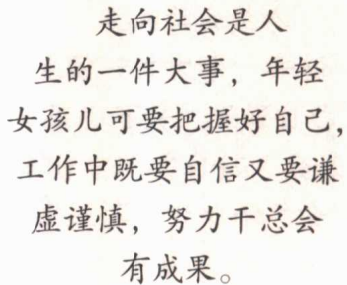 走向社会是人
生的一件大事，年轻
女孩儿可要把握好自己，
工作中既要自信又要谦
虚谨慎，努力干总会
有成果。